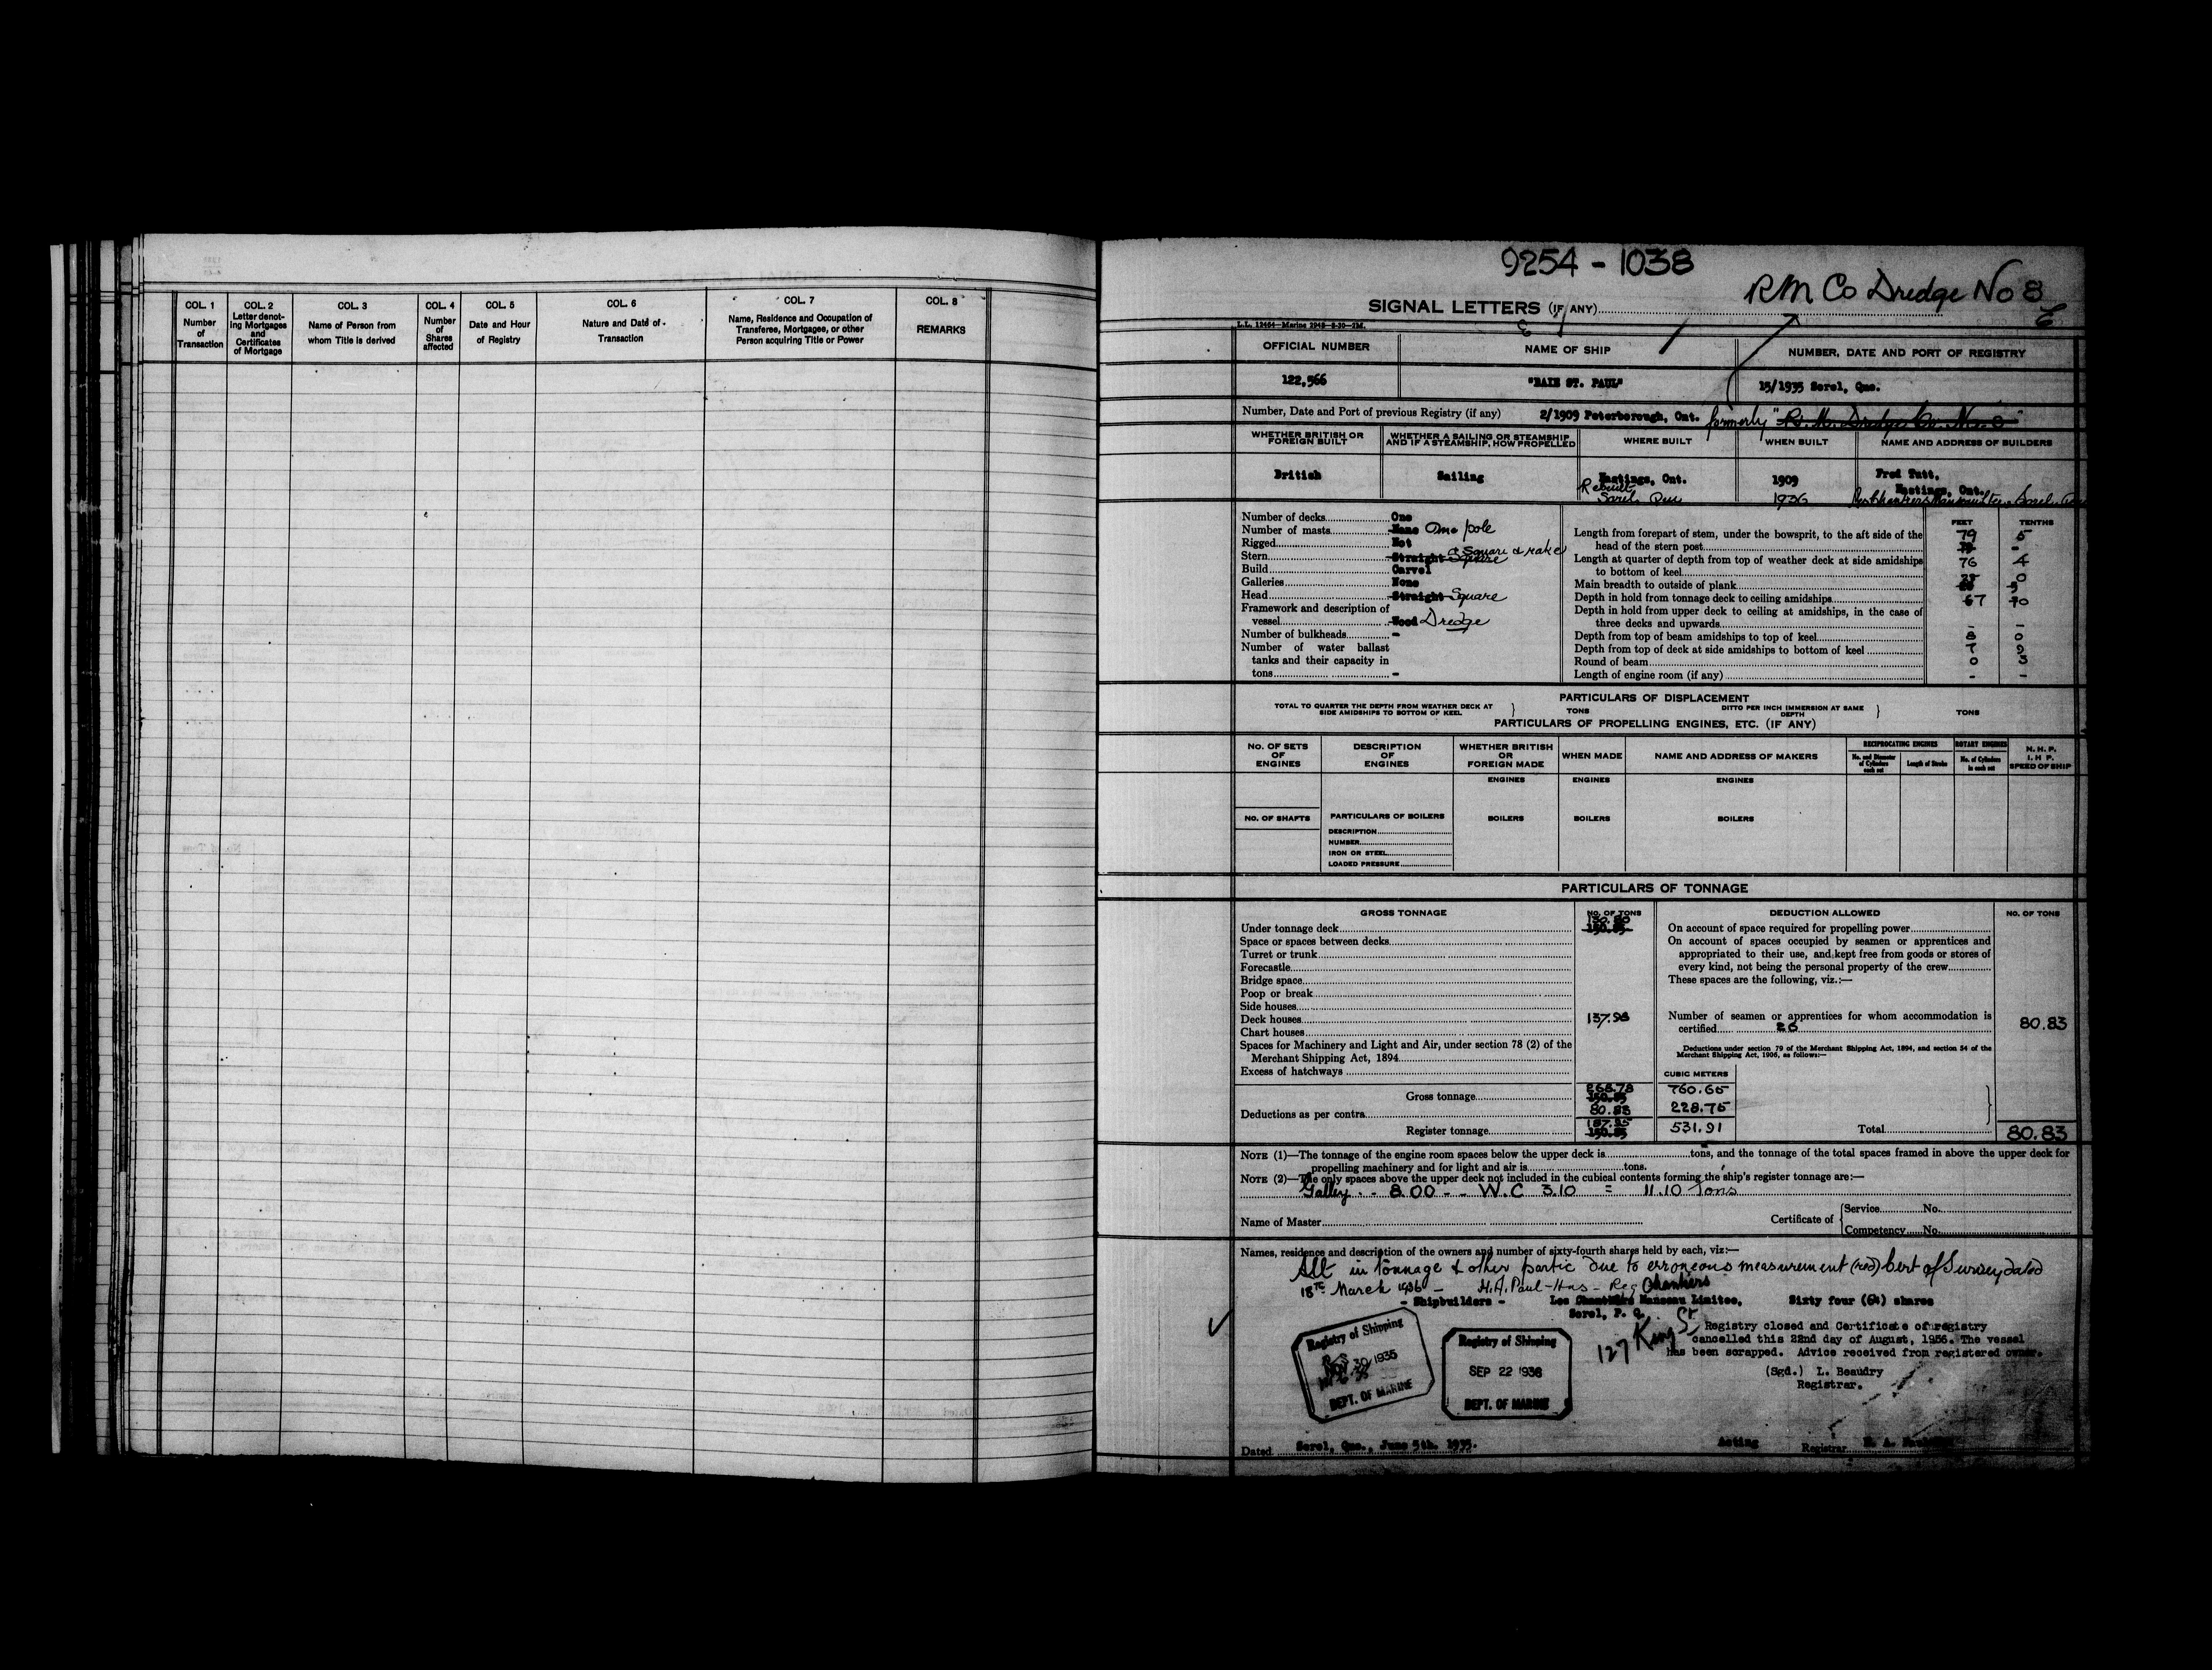 COL. 1
Number
of
Transaction
COL. 2
Letter denot-
ing Mortgages
and
Certificates
of Mortgage
COL. 3
Name of Person from
whom Title is derived
COL. 4
Number
of
Shares
affected
COL. 5
Date and Hour
of Registry
COL. 6
Nature and Date of
Transaction
COL. 7
Name, Residence and Occupation of
Transferee, Mortgagee, or other
Person acquiring Title or Power
COL. 8
REMARKS
9254 - 1038
RM Co Dredge No 8
SIGNAL LETTERS (IF ANY)
L.L. 12464—Marine 2948—8-30—2M.
OFFICIAL NUMBER
NAME OF SHIP
NUMBER, DATE AND PORT OF REGISTRY
122,566
"BAIE ST. PAUL"
15/1935 Sorel, Que.
Number, Date and Port of previous Registry (if any) 2/1909 Peterborough, Ont. formerly "R. M. Dredge Co. No. 8"
WHETHER BRITISH OR
FOREIGN BUILT
WHETHER A SAILING OR STEAMSHIP
AND IF A STEAMSHIP, HOW PROPELLED
WHERE BUILT
WHEN BUILT
NAME AND ADDRESS OF BUILDERS
British
Sailing
Hastings, Ont.
Rebuilt
Sorel Que
1909
1936
Fred Tutt,
Hastings, Ont.
Number of decks One
Number of masts None One pole
Rigged Not
Stern Straight Square Square & rake
Build Carvel
Galleries None
Head Straight Square
Framework and description of
vessel Wood Dredge
Number of bulkheads -
Number of water ballast
tanks and their capacity in
tons -
FEET TENTHS
Length from forepart of stem, under the bowsprit, to the aft side of the
head of the stern post 79 5
Length at quarter of depth from top of weather deck at side amidships
to bottom of keel 76 4
Main breadth to outside of plank 0
Depth in hold from tonnage deck to ceiling amidships 7
Depth in hold from upper deck to ceiling at amidships, in the case of
three decks and upwards - -
Depth from top of beam amidships to top of keel 8 0
Depth from top of deck at side amidships to bottom of keel 7 9
Round of beam 0 3
Length of engine room (if any) - -
PARTICULARS OF DISPLACEMENT
TOTAL TO QUARTER THE DEPTH FROM WEATHER DECK AT
SIDE AMIDSHIPS TO BOTTOM OF KEEL
TONS
DITTO PER INCH IMMERSION AT SAME
DEPTH
TONS
PARTICULARS OF PROPELLING ENGINES, ETC. (IF ANY)
NO. OF SETS
OF
ENGINES
DESCRIPTION
OF
ENGINES
WHETHER BRITISH
OR
FOREIGN MADE
WHEN MADE
NAME AND ADDRESS OF MAKERS
RECIPROCATING ENGINES
No. and Diameter
of Cylinders
each set
Length of Stroke
ROTARY ENGINES
No. of Cylinders
in each set
N. H. P.
I. H. P.
SPEED OF SHIP
ENGINES
ENGINES
ENGINES
NO. OF SHAFTS
PARTICULARS OF BOILERS
BOILERS
BOILERS
BOILERS
DESCRIPTION
NUMBER
IRON OR STEEL
LOADED PRESSURE
PARTICULARS OF TONNAGE
GROSS TONNAGE
NO. OF TONS
DEDUCTION ALLOWED
NO. OF TONS
Under tonnage deck 130.80 150.85
Space or spaces between decks
Turret or trunk
Forecastle
Bridge space
Poop or break
Side houses
Deck houses 137.98
Chart houses
Spaces for Machinery and Light and Air, under section 78 (2) of the
Merchant Shipping Act, 1894
Excess of hatchways
Gross tonnage 268.78 150.85
Deductions as per contra 80.83
Register tonnage 187.95 150.85
On account of space required for propelling power
On account of spaces occupied by seamen or apprentices and
appropriated to their use, and kept free from goods or stores of
every kind, not being the personal property of the crew
These spaces are the following, viz.:—
Number of seamen or apprentices for whom accommodation is
certified 26 80.83
Deductions under section 79 of the Merchant Shipping Act, 1894, and section 54 of the
Merchant Shipping Act, 1906, as follows:—
CUBIC METERS
760.65
228.75
531.91
Total 80.83
NOTE (1)—The tonnage of the engine room spaces below the upper deck is tons, and the tonnage of the total spaces framed in above the upper deck for
propelling machinery and for light and air is tons.
NOTE (2)—The only spaces above the upper deck not included in the cubical contents forming the ship's register tonnage are:—
Galley - - 8.00 - - W.C 3.10 = 11.10 Tons
Name of Master
Certificate of
Service No.
Competency No.
Names, residence and description of the owners and number of sixty-fourth shares held by each, viz:—
Alt in tonnage & other partic due to erroneous measurement (red) Cert of Survey dated
18th March 1936 — H.A. Paul-Hus - Reg
Chantiers
- Shipbuilders - Les Chantiers Manseau Limitee, Sixty four (64) shares
Sorel, P. Q.
127 King St
Registry closed and Certificate of registry
cancelled this 22nd day of August, 1956. The vessel
has been scrapped. Advice received from registered owner.
(Sgd.) L. Beaudry
Registrar.
Registry of Shipping
30 1935
DEPT. OF MARINE
Registry of Shipping
SEP 22 1936
DEPT. OF MARINE
Dated Sorel, Que., June 5th. 1935.
Acting Registrar